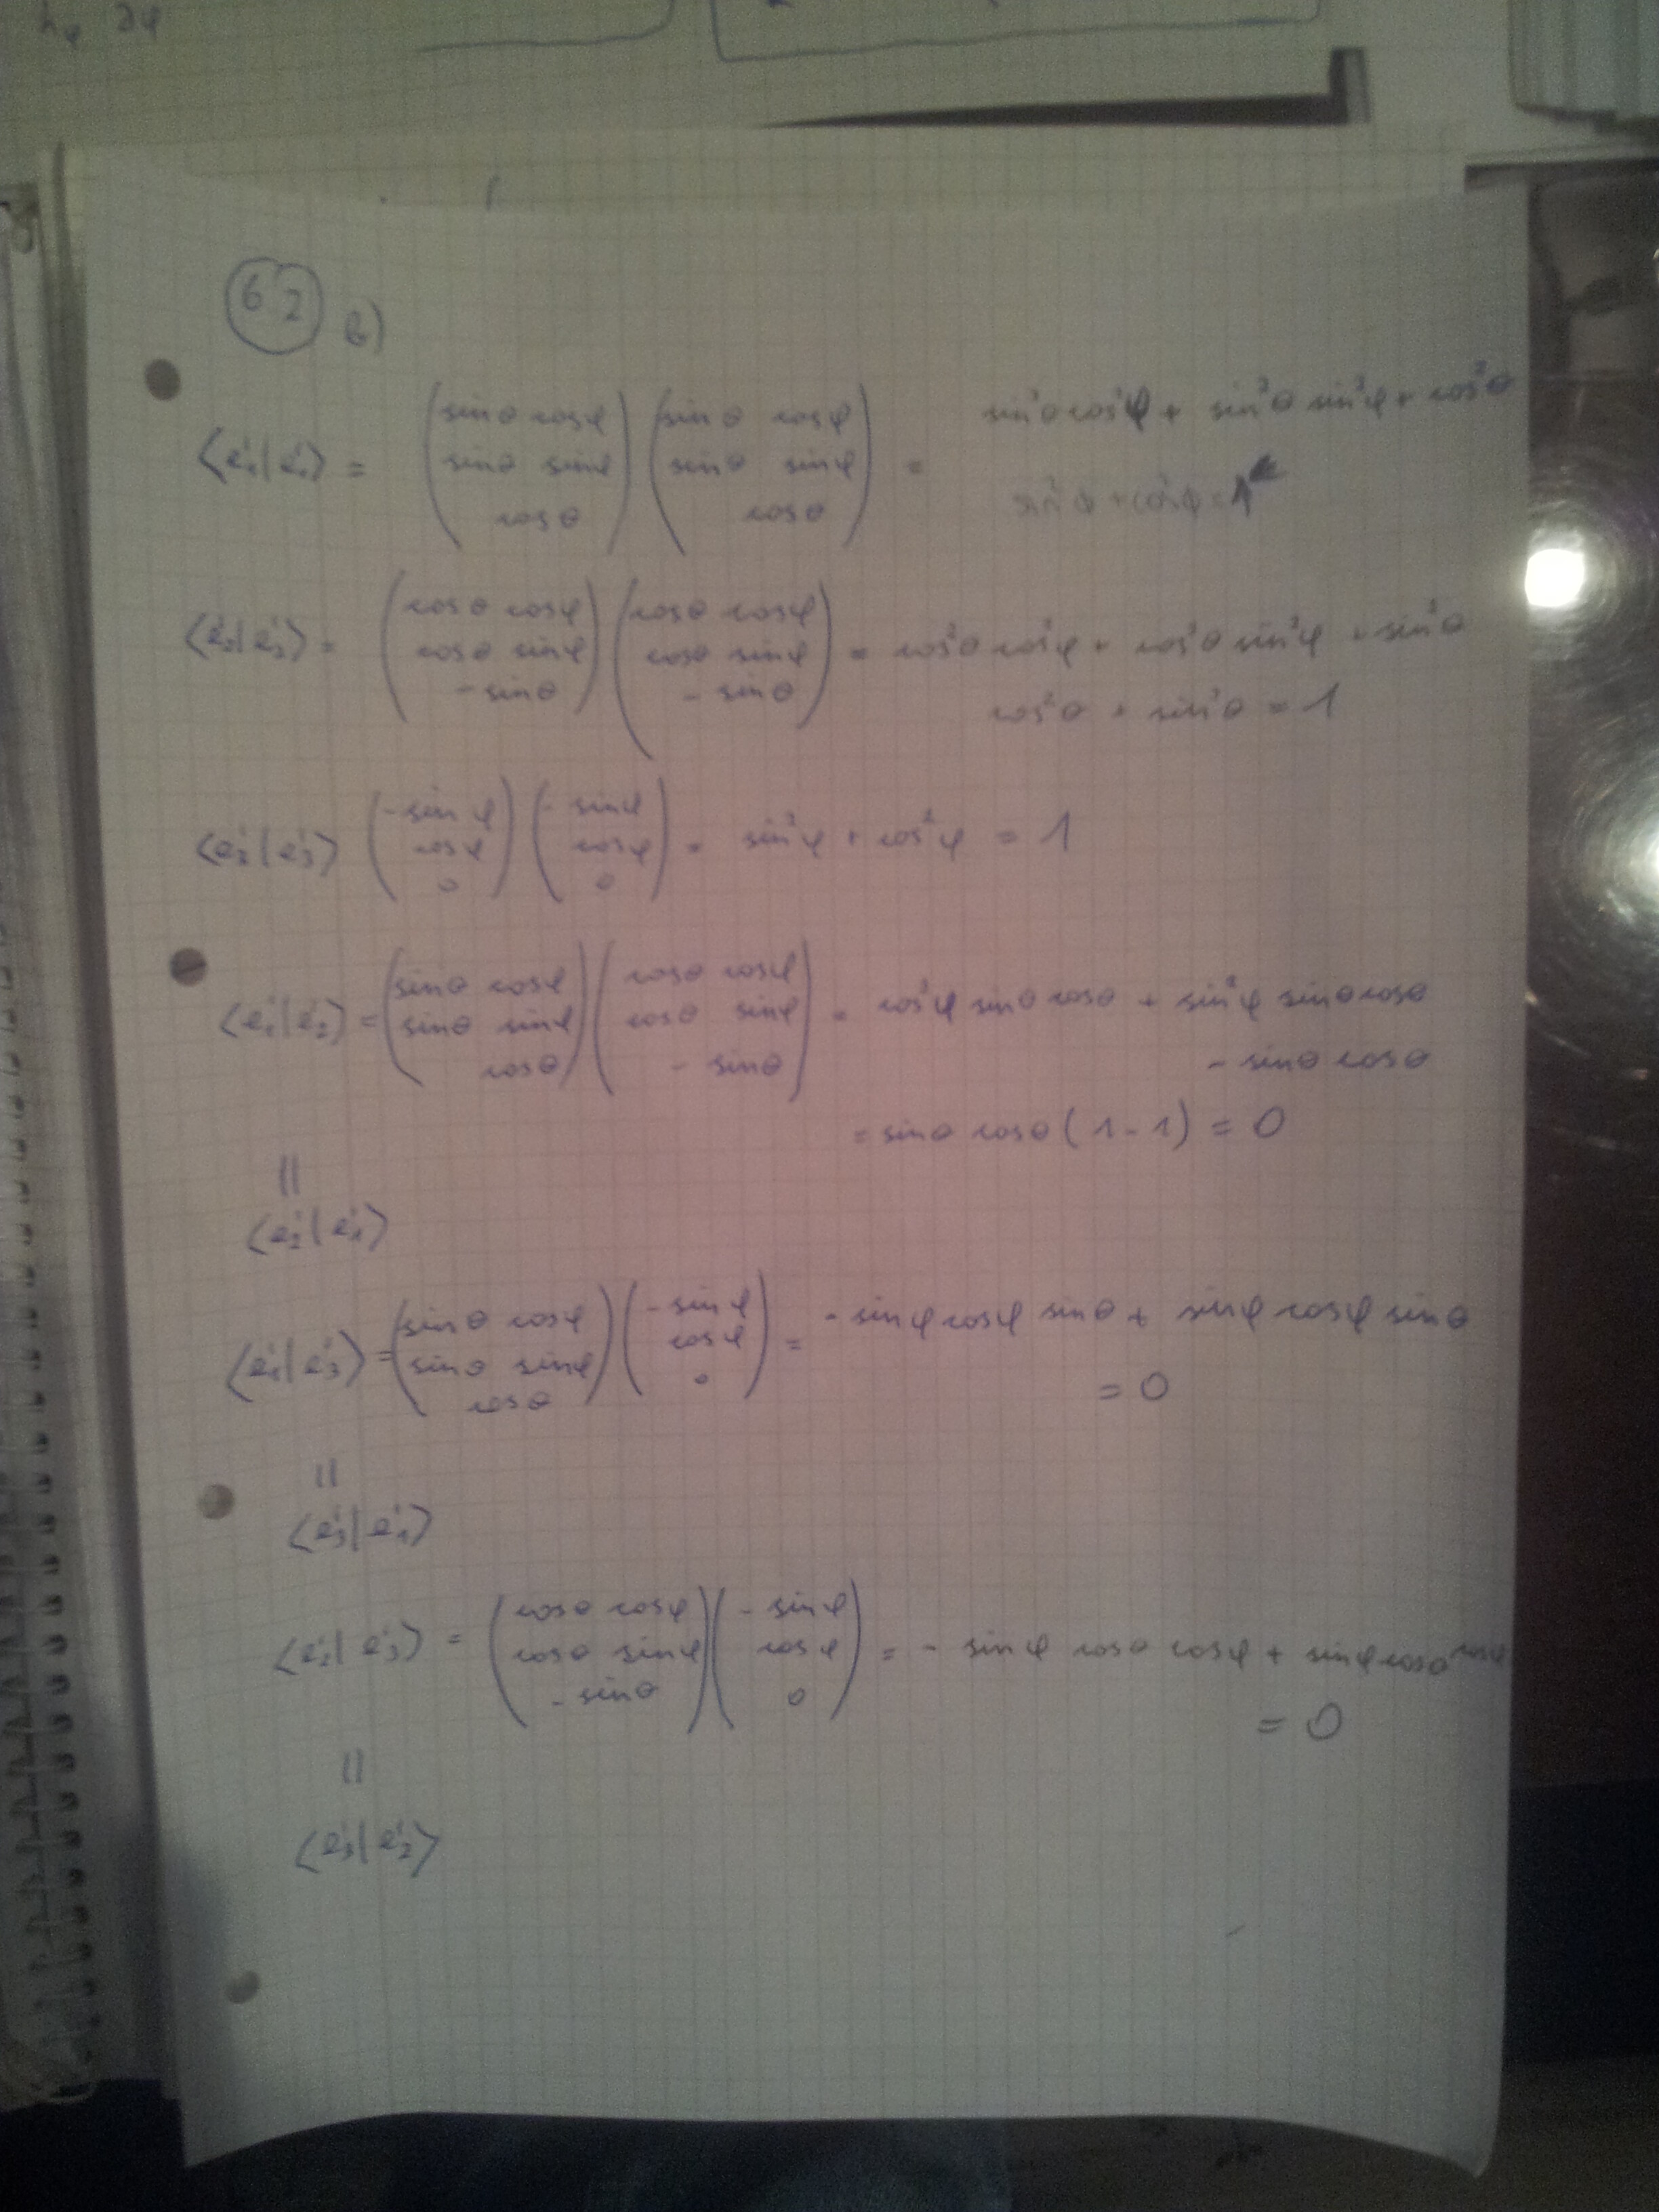 h_φ ∂φ
6.2 b)
⟨e'₁|e'₁⟩ = (sinθ cosφ, sinθ sinφ, cosθ) (sinθ cosφ, sinθ sinφ, cosθ) = sin²θ cos²φ + sin²θ sin²φ + cos²θ
sin²φ + cos²φ = 1
⟨e'₂|e'₂⟩ = (cosθ cosφ, cosθ sinφ, -sinθ) (cosθ cosφ, cosθ sinφ, -sinθ) = cos²θ cos²φ + cos²θ sin²φ + sin²θ
cos²θ + sin²θ = 1
⟨e'₃|e'₃⟩ (-sinφ, cosφ, 0) (-sinφ, cosφ, 0) = sin²φ + cos²φ = 1
⟨e'₁|e'₂⟩ = (sinθ cosφ, sinθ sinφ, cosθ) (cosθ cosφ, cosθ sinφ, -sinθ) = cos²φ sinθ cosθ + sin²φ sinθ cosθ
- sinθ cosθ
= sinθ cosθ (1-1) = 0
||
⟨e'₂|e'₁⟩
⟨e'₁|e'₃⟩ = (sinθ cosφ, sinθ sinφ, cosθ) (-sinφ, cosφ, 0) = - sinφ cosφ sinθ + sinφ cosφ sinθ
= 0
||
⟨e'₃|e'₁⟩
⟨e'₂|e'₃⟩ = (cosθ cosφ, cosθ sinφ, -sinθ) (-sinφ, cosφ, 0) = - sinφ cosθ cosφ + sinφ cosθ cosφ
= 0
||
⟨e'₃|e'₂⟩